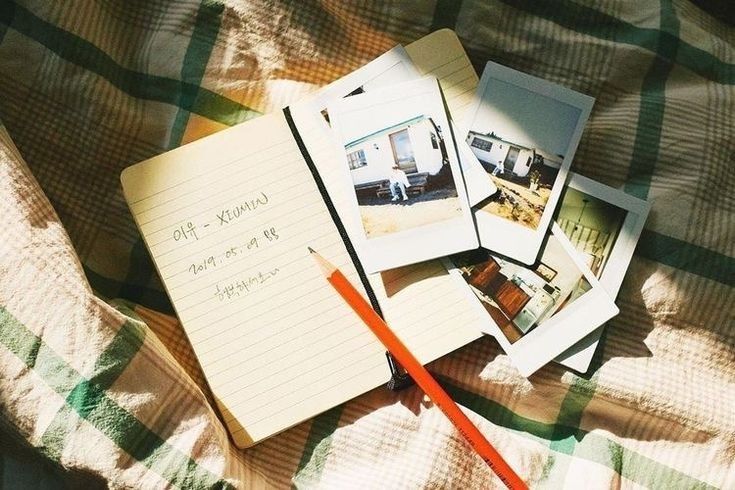 이유 - XIUMIN
2019. 05. 09
행복하세요